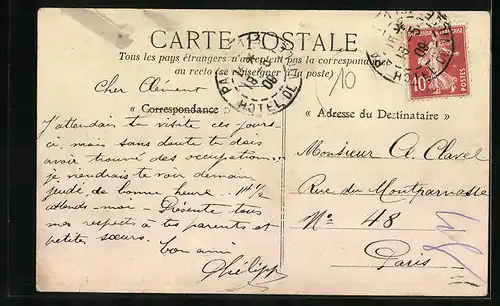 CARTE POSTALE
Tous les pays étrangers n'acceptent pas la correspondance
au recto (se renseigner à la poste)
10
Cher Clément
« Correspondance »
« Adresse du Deztinataire »
J'attendais ta visite ces jours
ci, mais sans doute tu dois
avoir trouvé des occupations...
je viendrais te voir demain
jeudi de bonne heure. 1H ½
attends-moi - Présente tous
mes respects à tes parents et
petites sœurs.
bon ami
Philipp
Monsieur A. Clavel
Rue du Montparnasse
Nº 48
Paris
PARIS
HOTEL DE
08
10